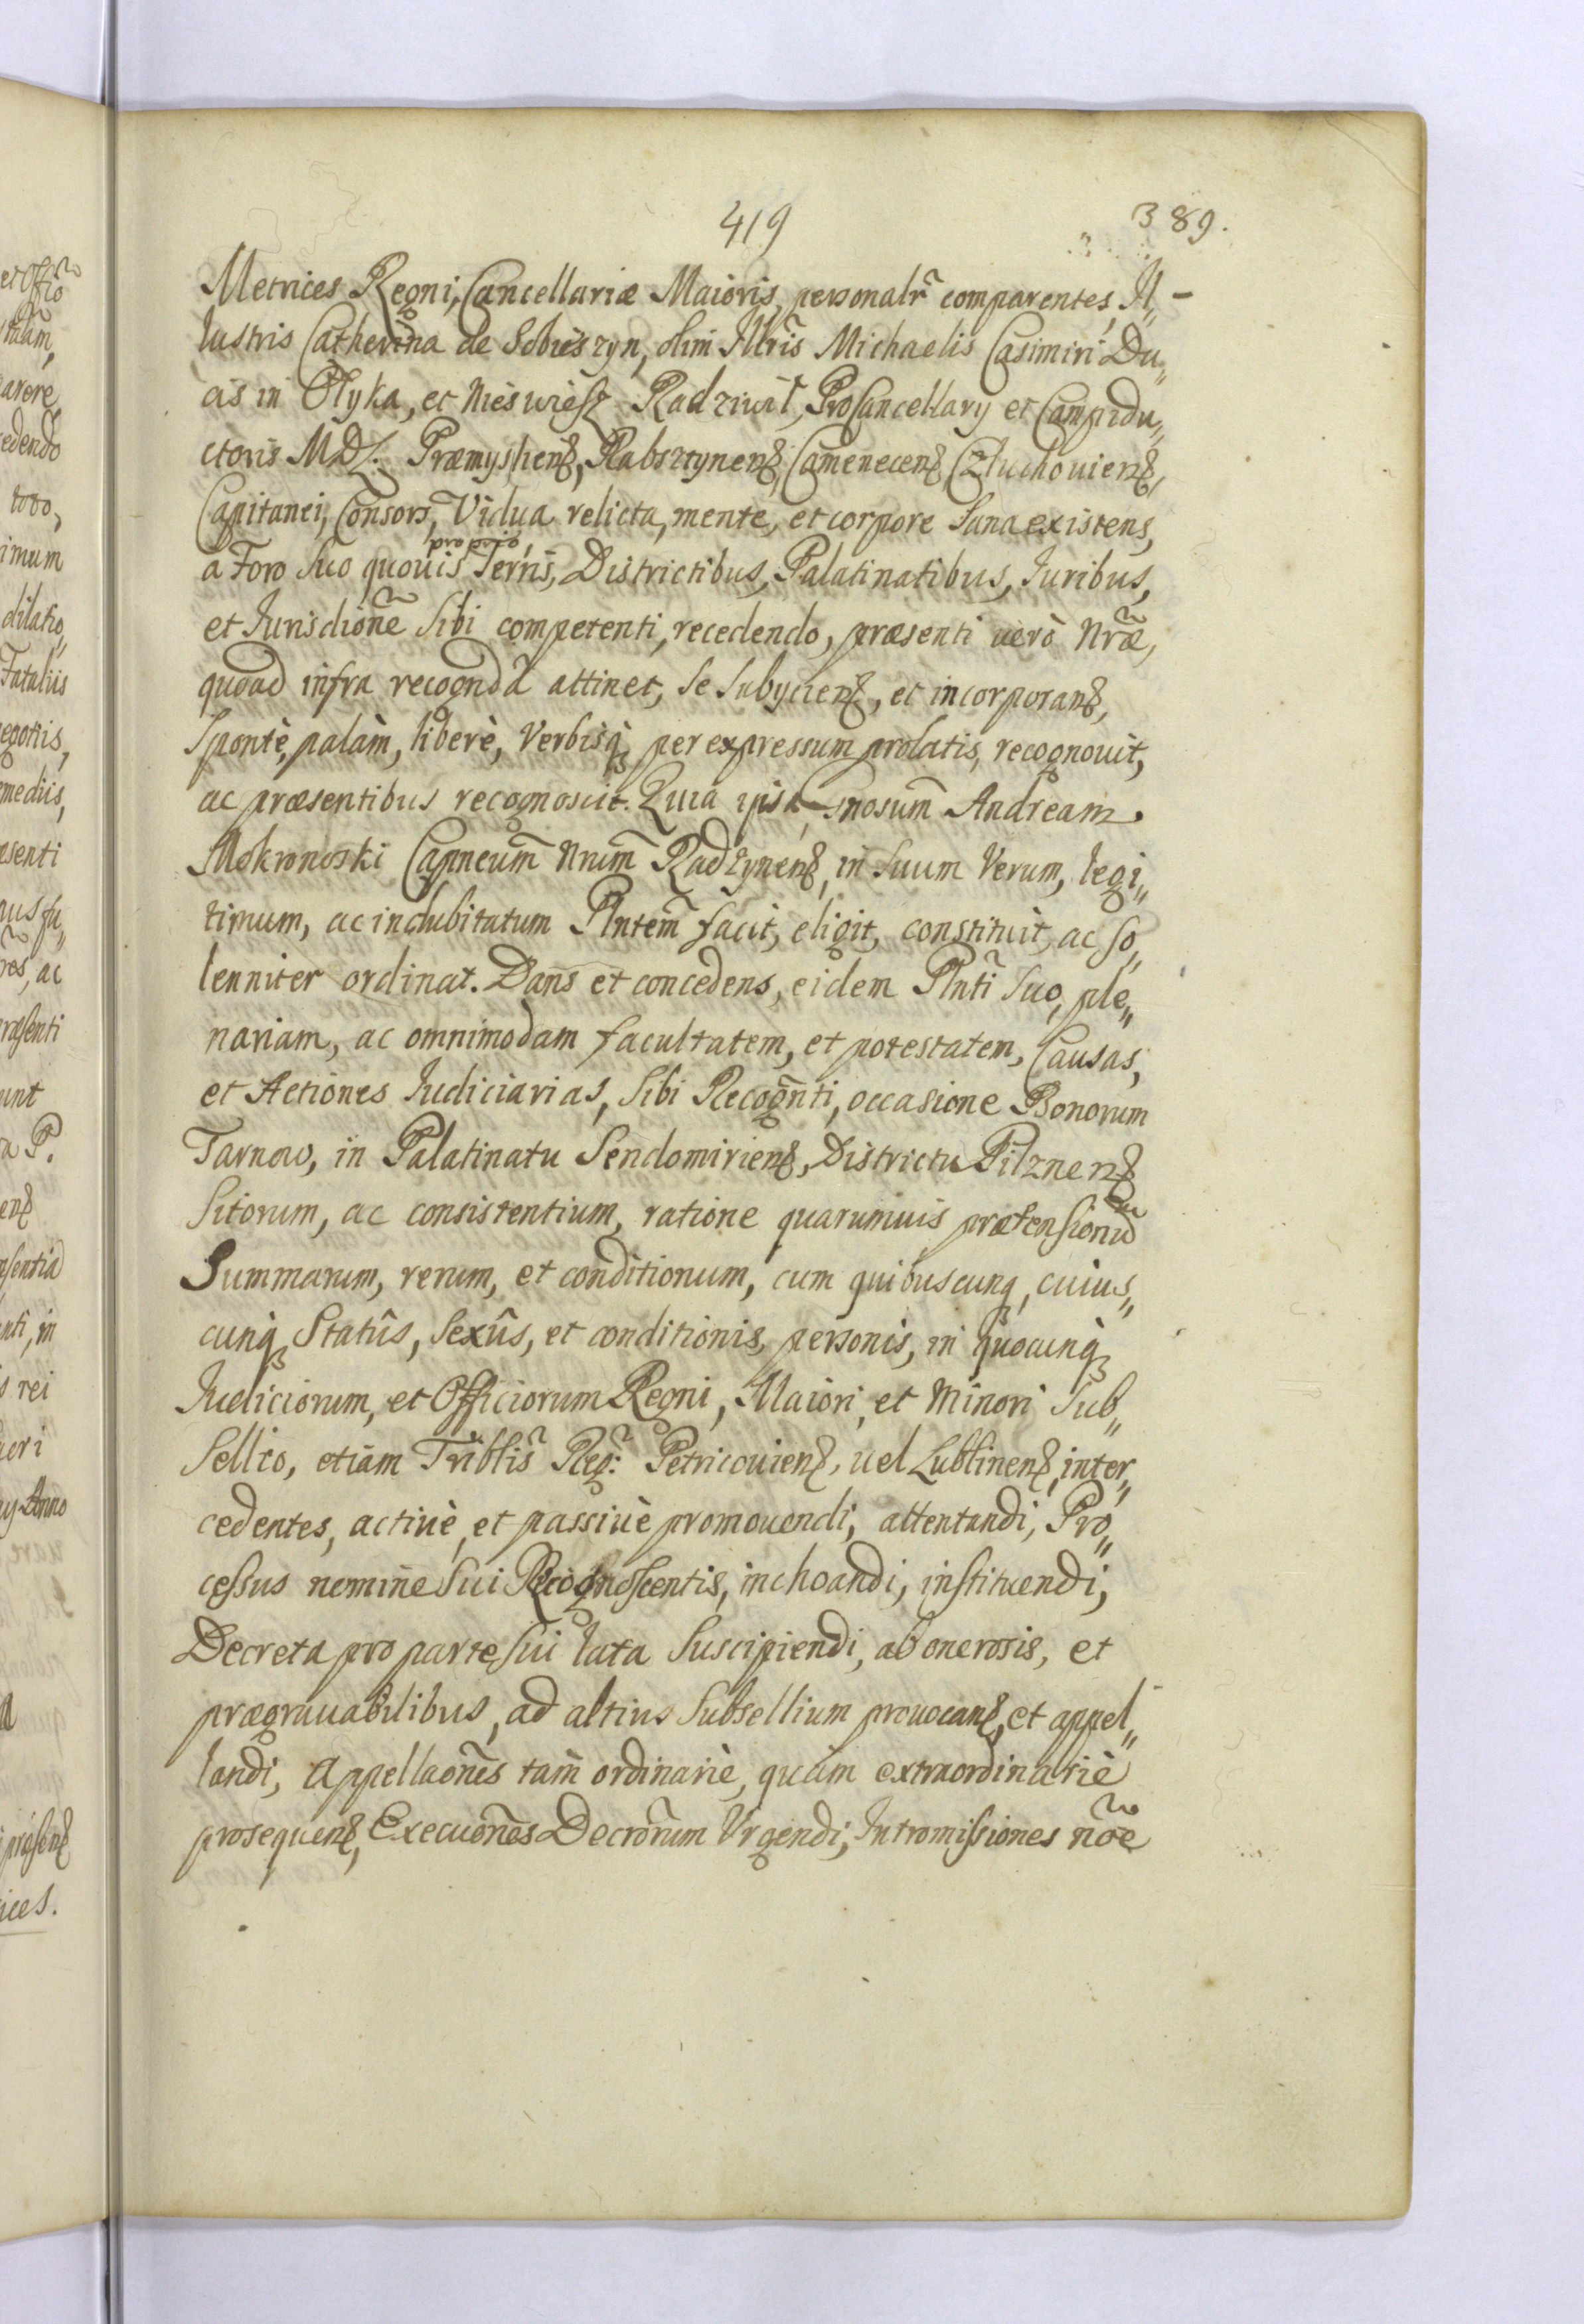 419
389.
Metrices Regni, Cancellariæ Maioris, personalr̃ comparentes, Il„
lustris Catherina de Sobieszyn, olim Illr̃is Michaelis Casimiri Du„
cis in Ołyka, et Nieswiesz Radziwił, ProCancellarÿ et Campidu„
ctoris MDL. Præmyslienß, Rabsztynenß, Camenecenß Człuchovienß,
Capitanei, Consors, Vidua relicta, mente, et corpore Sana existens,
a Foro Suo quovis Terris, Districtibus, Palatinatibus, Juribus,
et Jurisdiõne Sibi competenti, recedendo, præsenti verò Nr̃æ,
quoad infra recogndã attinet, se Subÿcienß, et incorporanß,
Spontè, palàm, liberè, Verbisq; per expressum prolatis, recognovit,
ac præsentibus recognoscit. Quia ipsa Gnosum̃ Andream
Mokronoski Capneum̃ Nrum̃ Radzynenß, in Suum Verum, legi„
timum, ac indubitatum Plntem̃ facit, eligit, constituit, ac so„
lenniter ordinat. Dans et concedens, eidem Plnti Suo, ple„
nariam, ac omnimodam facultatem, et potestatem, Causas,
et Actiones Judiciarias, Sibi Recogñti, occasione Bonorum
Tarnow, in Palatinatu Sendomirienß, Districtu Pilznenß
Sitorum, ac consistentium, ratione quarumvis prætensionũ
Summarum, rerum, et conditionum, cum quibuscunq, cuius„
cunq; Statûs, Sexûs, et conditionis, personis, in quocunq;
Judiciorum, et Officiorum Regni, Maiori, et Minori Sub„
Sellio, etiam Triblis̃ Reg: Petricovienß, vel Lublinenß, inter„
cedentes, activè, et passivè promovendi, attentandi, Pro„
cessus nomine Sui Recognoscentis, inchoandi, instituendi,
Decreta pro parte Sui lata Suscipiendi, ab onerosis, et
prægravabilibus, ad altius Subsellium provocanß, et appel„
landi, Appellaões tam̃ ordinariè, quàm extraordinariè
prosequenß, Execuões Decrõrum Urgendi, Intromissiones nõe